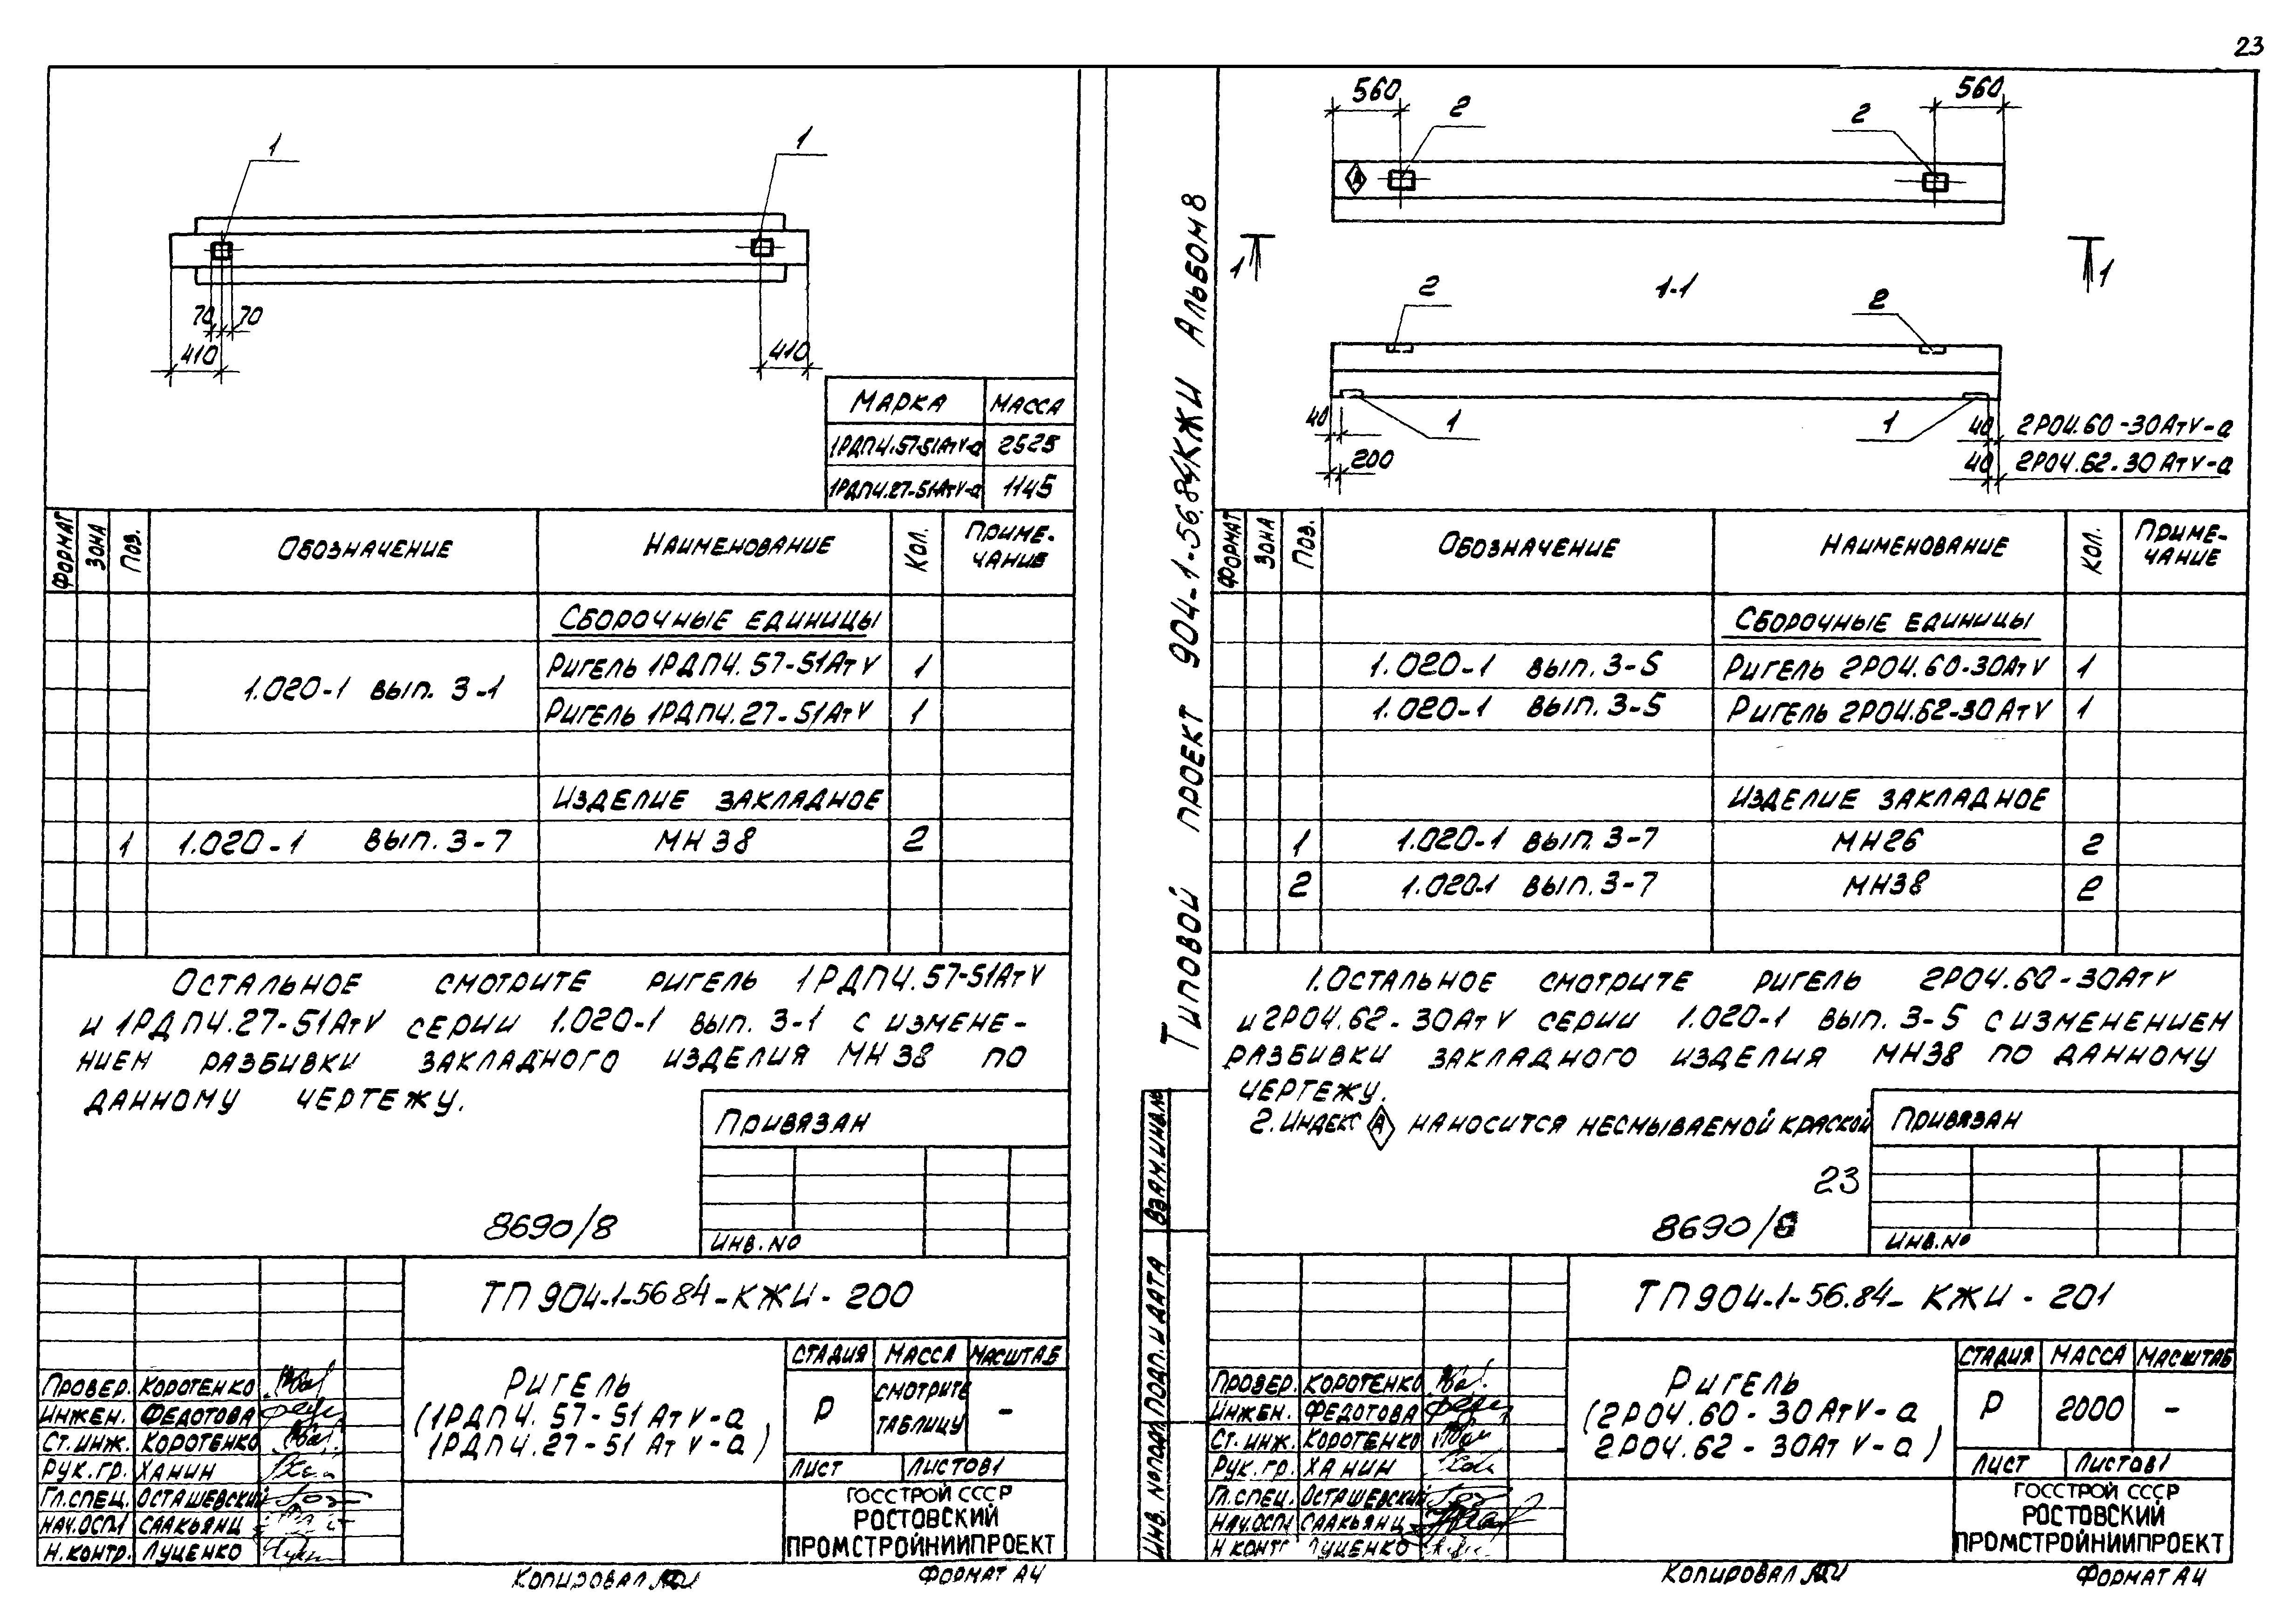 23
1
1
70 70
410
410
МАРКА МАССА
1РДП4.57-51АтV-а 2525
1РДП4.27-51АтV-а 1145
ФОРМАТ ЗОНА ПОЗ. ОБОЗНАЧЕНИЕ НАИМЕНОВАНИЕ КОЛ. ПРИМЕ-
ЧАНИЕ
СБОРОЧНЫЕ ЕДИНИЦЫ
1.020-1 вып. 3-1 РИГЕЛЬ 1РДП4.57-51АтV 1
РИГЕЛЬ 1РДП4.27-51АтV 1
ИЗДЕЛИЕ ЗАКЛАДНОЕ
1 1.020-1 ВЫП. 3-7 МН38 2
ОСТАЛЬНОЕ СМОТРИТЕ РИГЕЛЬ 1РДП4.57-51АтV
и 1РДП4.27-51АтV СЕРИИ 1.020-1 вып. 3-1 С ИЗМЕНЕ-
НИЕМ РАЗБИВКИ ЗАКЛАДНОГО ИЗДЕЛИЯ МН38 ПО
ДАННОМУ ЧЕРТЕЖУ.
ПРИВЯЗАН
ИНВ.№
8690/8
ТП 904-1-56 84-КЖИ-200
РИГЕЛЬ
(1РДП4.57-51АтV-а,
1РДП4.27-51АтV-а)
СТАДИЯ МАССА МАСШТАБ
Р СМОТРИТЕ -
ТАБЛИЦУ
ЛИСТ ЛИСТОВ 1
ГОССТРОЙ СССР
РОСТОВСКИЙ
ПРОМСТРОЙНИИПРОЕКТ
ПРОВЕР. КОРОТЕНКО
ИНЖЕН. ФЕДОТОВА
СТ.ИНЖ. КОРОТЕНКО
РУК.ГР. ХАНИН
ГЛ.СПЕЦ. ОСТАШЕВСКИЙ
НАЧ.ОСП1 СААКЬЯНЦ
Н.КОНТР. ЛУЦЕНКО
КОПИРОВАЛ ФОРМАТ А4
ТИПОВОЙ ПРОЕКТ 904-1-56.84КЖИ АЛЬБОМ 8
ВЗАМ.ИНВ.№
ПОДП. И ДАТА
ИНВ.№ПОДЛ
560
2
2
560
А
1
1
1-1
2
2
1
1
40
200
40 2Р04.60-30АтV-а
40 2Р04.62-30АтV-а
ФОРМАТ ЗОНА ПОЗ. ОБОЗНАЧЕНИЕ НАИМЕНОВАНИЕ КОЛ. ПРИМЕ-
ЧАНИЕ
СБОРОЧНЫЕ ЕДИНИЦЫ
1.020-1 ВЫП. 3-5 РИГЕЛЬ 2Р04.60-30АтV 1
1.020-1 ВЫП. 3-5 РИГЕЛЬ 2Р04.62-30АтV 1
ИЗДЕЛИЕ ЗАКЛАДНОЕ
1 1.020-1 ВЫП. 3-7 МН26 2
2 1.020-1 ВЫП. 3-7 МН38 2
1. ОСТАЛЬНОЕ СМОТРИТЕ РИГЕЛЬ 2Р04.60-30АтV
и 2Р04.62-30АтV СЕРИИ 1.020-1 ВЫП. 3-5 С ИЗМЕНЕНИЕМ
РАЗБИВКИ ЗАКЛАДНОГО ИЗДЕЛИЯ МН38 ПО ДАННОМУ
ЧЕРТЕЖУ.
2. ИНДЕКС А НАНОСИТСЯ НЕСМЫВАЕМОЙ КРАСКОЙ
ПРИВЯЗАН
ИНВ.№
23
8690/8
ТП 904-1-56.84-КЖИ-201
РИГЕЛЬ
(2Р04.60-30АтV-а
2Р04.62-30АтV-а)
СТАДИЯ МАССА МАСШТАБ
Р 2000 -
ЛИСТ ЛИСТОВ 1
ГОССТРОЙ СССР
РОСТОВСКИЙ
ПРОМСТРОЙНИИПРОЕКТ
ПРОВЕР. КОРОТЕНКО
ИНЖЕН. ФЕДОТОВА
СТ.ИНЖ. КОРОТЕНКО
РУК.ГР. ХАНИН
ГЛ.СПЕЦ. ОСТАШЕВСКИЙ
НАЧ.ОСП1 СААКЬЯНЦ
Н КОНТР ЛУЦЕНКО
КОПИРОВАЛ ФОРМАТ А4